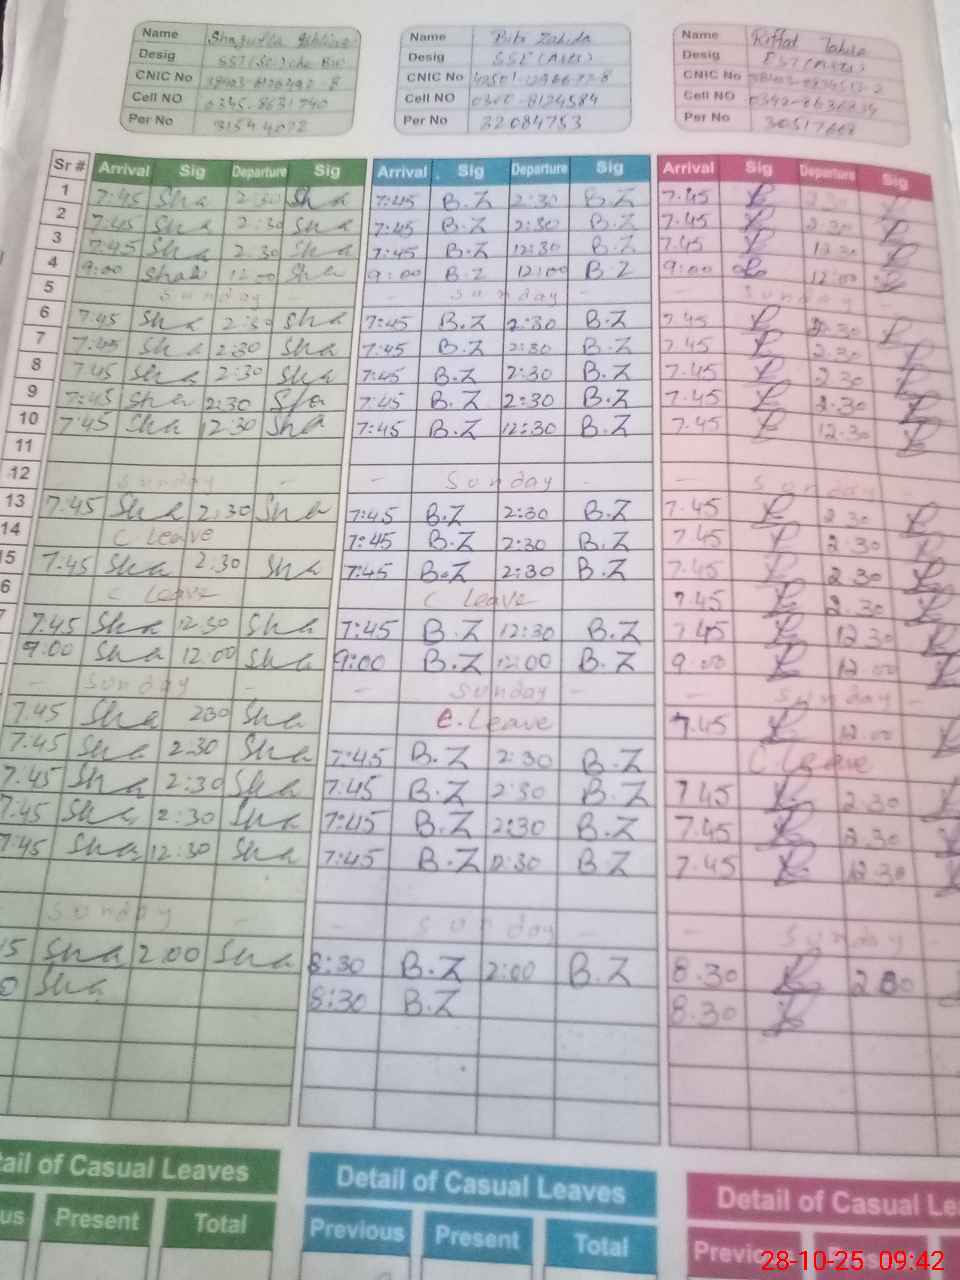 Name Shagufta
Desig SST (Sc) Che Bio
CNIC No
Cell NO 0345-8631740
Per No 31544072
Name Bibi Zahida
Desig SSE (Arts)
CNIC No
Cell NO 0300-8124584
Per No 32084753
Name Riffat Tahira
Desig EST (Arts)
CNIC No
Cell NO
Per No
Sr # Arrival Sig Departure Sig Arrival Sig Departure Sig Arrival Sig Departure Sig
1 7:45 Sha 2:30 Sha 7:45 B.Z 2:30 B.Z 7.45 2.30
2 7:45 Sha 2:30 Sha 7:45 B.Z 2:30 B.Z 7.45 2.30
3 7:45 Sha 2.30 Sha 7:45 B.Z 12:30 B.Z 7.45 12.30
4 9:00 Sha 12.00 Sha 9:00 B.Z 12:00 B.Z 9:00 12:00
5 - Sunday - - Sunday - - Sunday -
6 7.45 Sha 2:30 Sha 7:45 B.Z 2:30 B.Z 7.45 2.30
7 7:45 Sha 2:30 Sha 7:45 B.Z 2:30 B.Z 7.45 2.30
8 7.45 Sha 2:30 Sha 7:45 B.Z 2:30 B.Z 7.45 2.30
9 7:45 Sha 2:30 Sha 7:45 B.Z 2:30 B.Z 7.45 2.30
10 7:45 Sha 12:30 Sha 7:45 B.Z 12:30 B.Z 7.45 12.30
11
12 - Sunday - - Sunday - - Sunday -
13 7:45 Sha 2.30 Sha 7:45 B.Z 2:30 B.Z 7.45 2.30
14 C leave 7:45 B.Z 2:30 B.Z 7.45 2.30
15 7:45 Sha 2.30 Sha 7:45 B.Z 2:30 B.Z 7.45 2.30
6 C leave C leave 7.45 2.30
7 7.45 Sha 12.30 Sha 7:45 B.Z 12:30 B.Z 7.45 12.30
9.00 Sha 12.00 Sha 9:00 B.Z 12:00 B.Z 9.00 12.00
- Sunday - - Sunday - - Sunday -
7.45 Sha 230 Sha C.Leave 7.45 12.00
7.45 Sha 2.30 Sha 7:45 B.Z 2:30 B.Z C.leave
7.45 Sha 2:30 Sha 7:45 B.Z 2:30 B.Z 7.45 2.30
7.45 Sha 2:30 Sha 7:45 B.Z 2:30 B.Z 7.45 2.30
7:45 Sha 12:30 Sha 7:45 B.Z 12:30 B.Z 7.45 12.30
- Sunday - - Sunday - - Sunday -
Sha 2.00 Sha 8:30 B.Z 2:00 B.Z 8.30 2.00
Sha 8:30 B.Z 8.30
tail of Casual Leaves Detail of Casual Leaves Detail of Casual Le
us Present Total Previous Present Total Previo
28-10-25 09:42